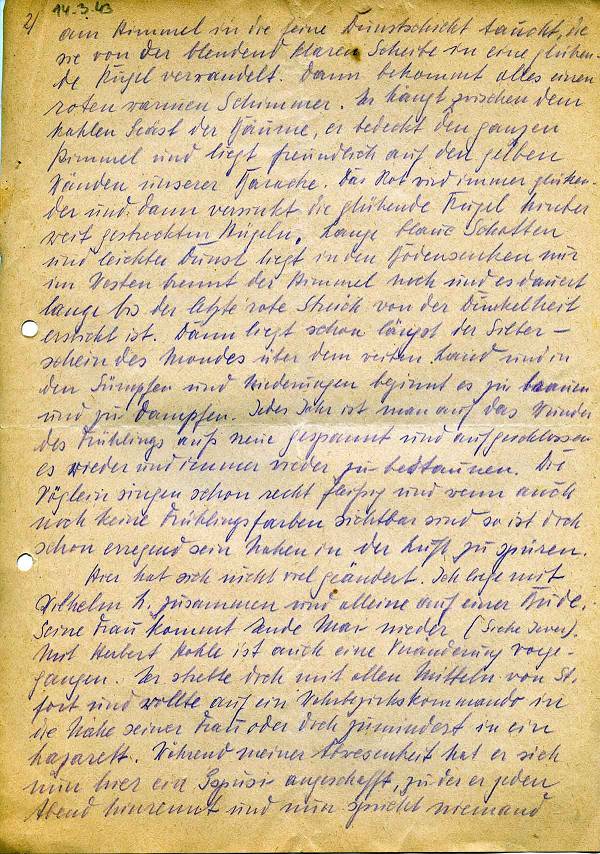 2/ 14.3.43
am Himmel in die feine Dunstschicht taucht, die
sie von der blendend klaren Scheibe in eine glühen-
de Kugel verwandelt. Dann bekommt alles einen
roten warmen Schimmer. Er hängt zwischen dem
kahlen Geäst der Bäume, er bedeckt den ganzen
Himmel und liegt freundlich auf den gelben
Wänden unserer Baracke. Das Rot wird immer glühen-
der und dann versinkt die glühende Kugel hinter
weit gestreckten Hügeln. Lange blaue Schatten
und leichter Dunst liegt in den Bodensenken nur
im Westen brennt der Himmel noch und es dauert
lange bis der letzte rote Streich von der Dunkelheit
erstickt ist. Dann liegt schon längst der Silber-
schein des Mondes über dem weiten Land und in
den Sümpfen und Niederungen beginnt es zu brauen
und zu dampfen. Jedes Jahr ist man auf das Wunder
des Frühlings aufs neue gespannt und aufgeschlossen
es wieder und immer wieder zu bestaunen. Die
Vöglein singen schon recht fleißig und wenn auch
noch keine Frühlingsfarben sichtbar sind so ist doch
schon erregend sein Nahen in der Luft zu spüren.
Hier hat sich nicht viel geändert. Ich liege mit
Wilhelm L. zusammen und alleine auf einer Bude.
Seine Frau kommt Ende Mai nieder (Siehe Jever).
Mit Herbert Hohle ist auch eine Veränderung vorge-
gangen. Er strebte doch mit allen Mitteln von St.
fort und wollte auf ein Wehrbezirkskommando in
die Nähe seiner Frau oder doch zumindest in ein
Lazarett. Während meiner Abwesenheit hat er sich
nun hier ein Gspusi angeschafft, zu der er jeden
Abend hinrennt und nun spricht niemand